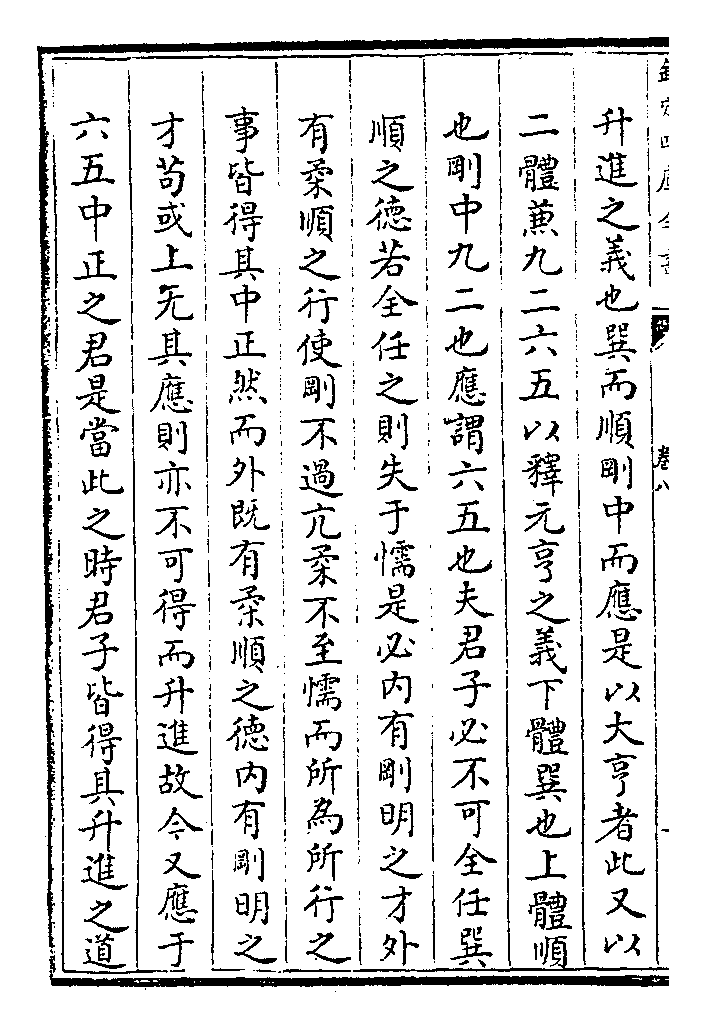 欽定四庫全書
卷八
升進之義也巽而順剛中而應是以大亨者此又以
二體蒹九二六五以釋元亨之義下體巽也上體順
也剛中九二也應謂六五也夫君子必不可全任巽
順之德若全任之則失于懦是必内有剛明之才外
有柔順之行使剛不過亢柔不至懦而所為所行之
事皆得其中正然而外既有柔順之德内有剛明之
才苟或上无其應則亦不可得而升進故今又應于
六五中正之君是當此之時君子皆得其升進之道